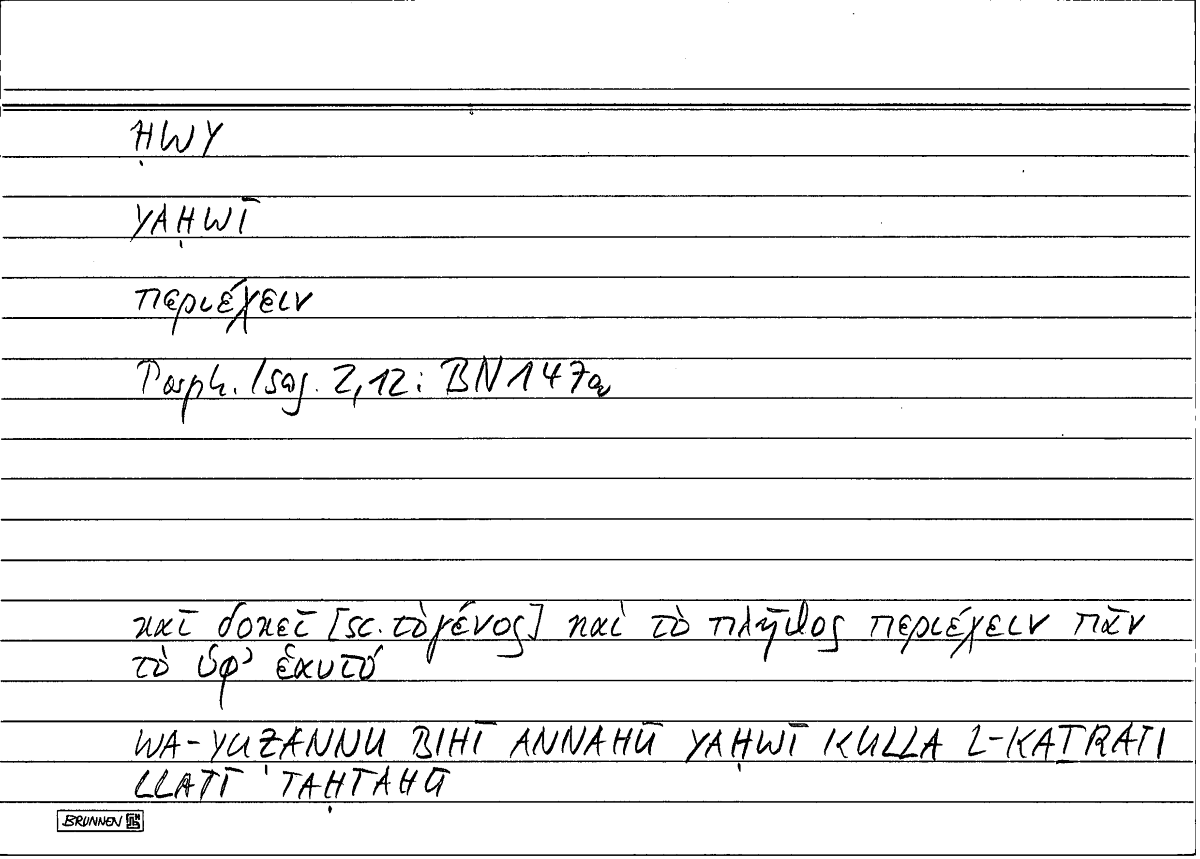 ḤWY
YAḤWĪ
περιέχειν
Porph. Isag. 2,12: BN 147a
καὶ δοκεῖ [sc. τὸ γένος] καὶ τὸ πλῆθος περιέχειν πᾶν
τὸ ὑφ' ἑαυτό
WA-YUẒANNU BIHĪ ANNAHŪ YAḤWĪ KULLA L-KAṮRATI
LLATĪ TAḤTAHŪ
BRUNNEN